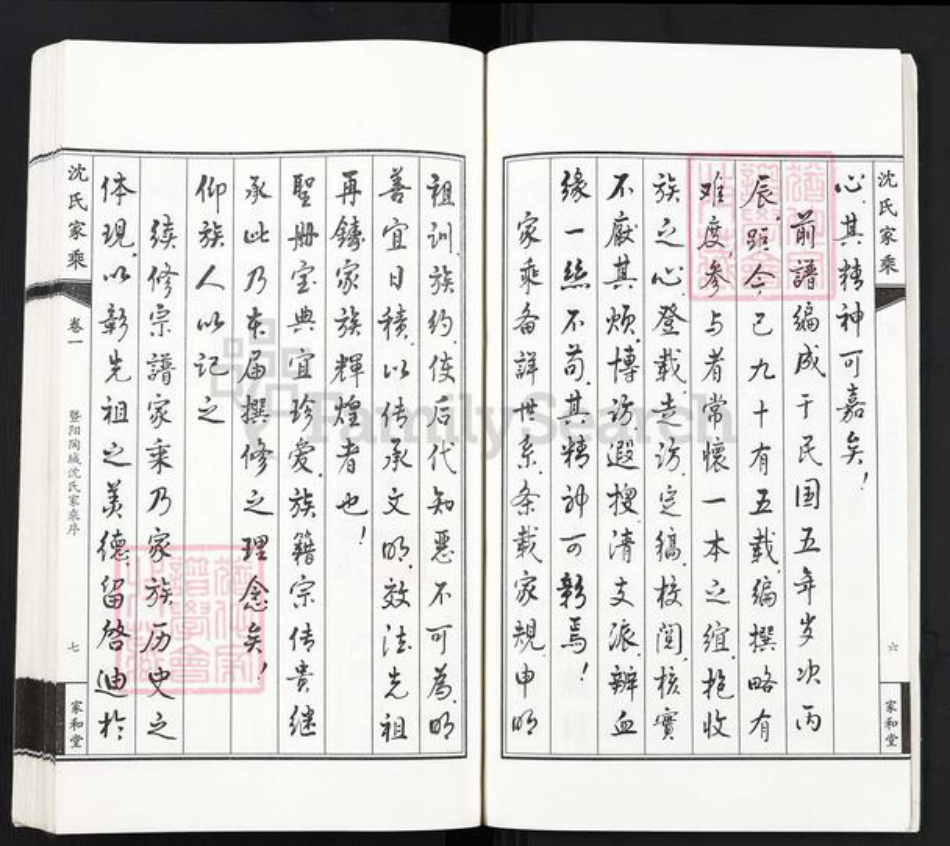 沈氏家乘
六
家和堂
心.其精神可嘉矣!
前譜编成于民国五年岁次丙
辰.距今已九十有五载.编撰略有
难度.参与者常懷一本之谊.抱收
族之心.登载走访.定稿校閲.核實
不厭其煩.博访遐搜.清支派.辨血
缘一絲不苟.其精神可彰焉!
家乘备詳世系.条载家規.申明
祖训.族约.使后代知惡不可為.明
善宜日積.以传承文明.效法先祖
再鑄家族輝煌者也!
聖册宝典宜珍爱.族籍宗传貴继
承此乃本届撰修之理念矣!
仰族人以记之
续修宗譜家乘乃家族历史之
体现.以彰先祖之美德.留啓迪於
沈氏家乘
卷一
暨阳陶城沈氏家乘序
七
家和堂
FamilySearch